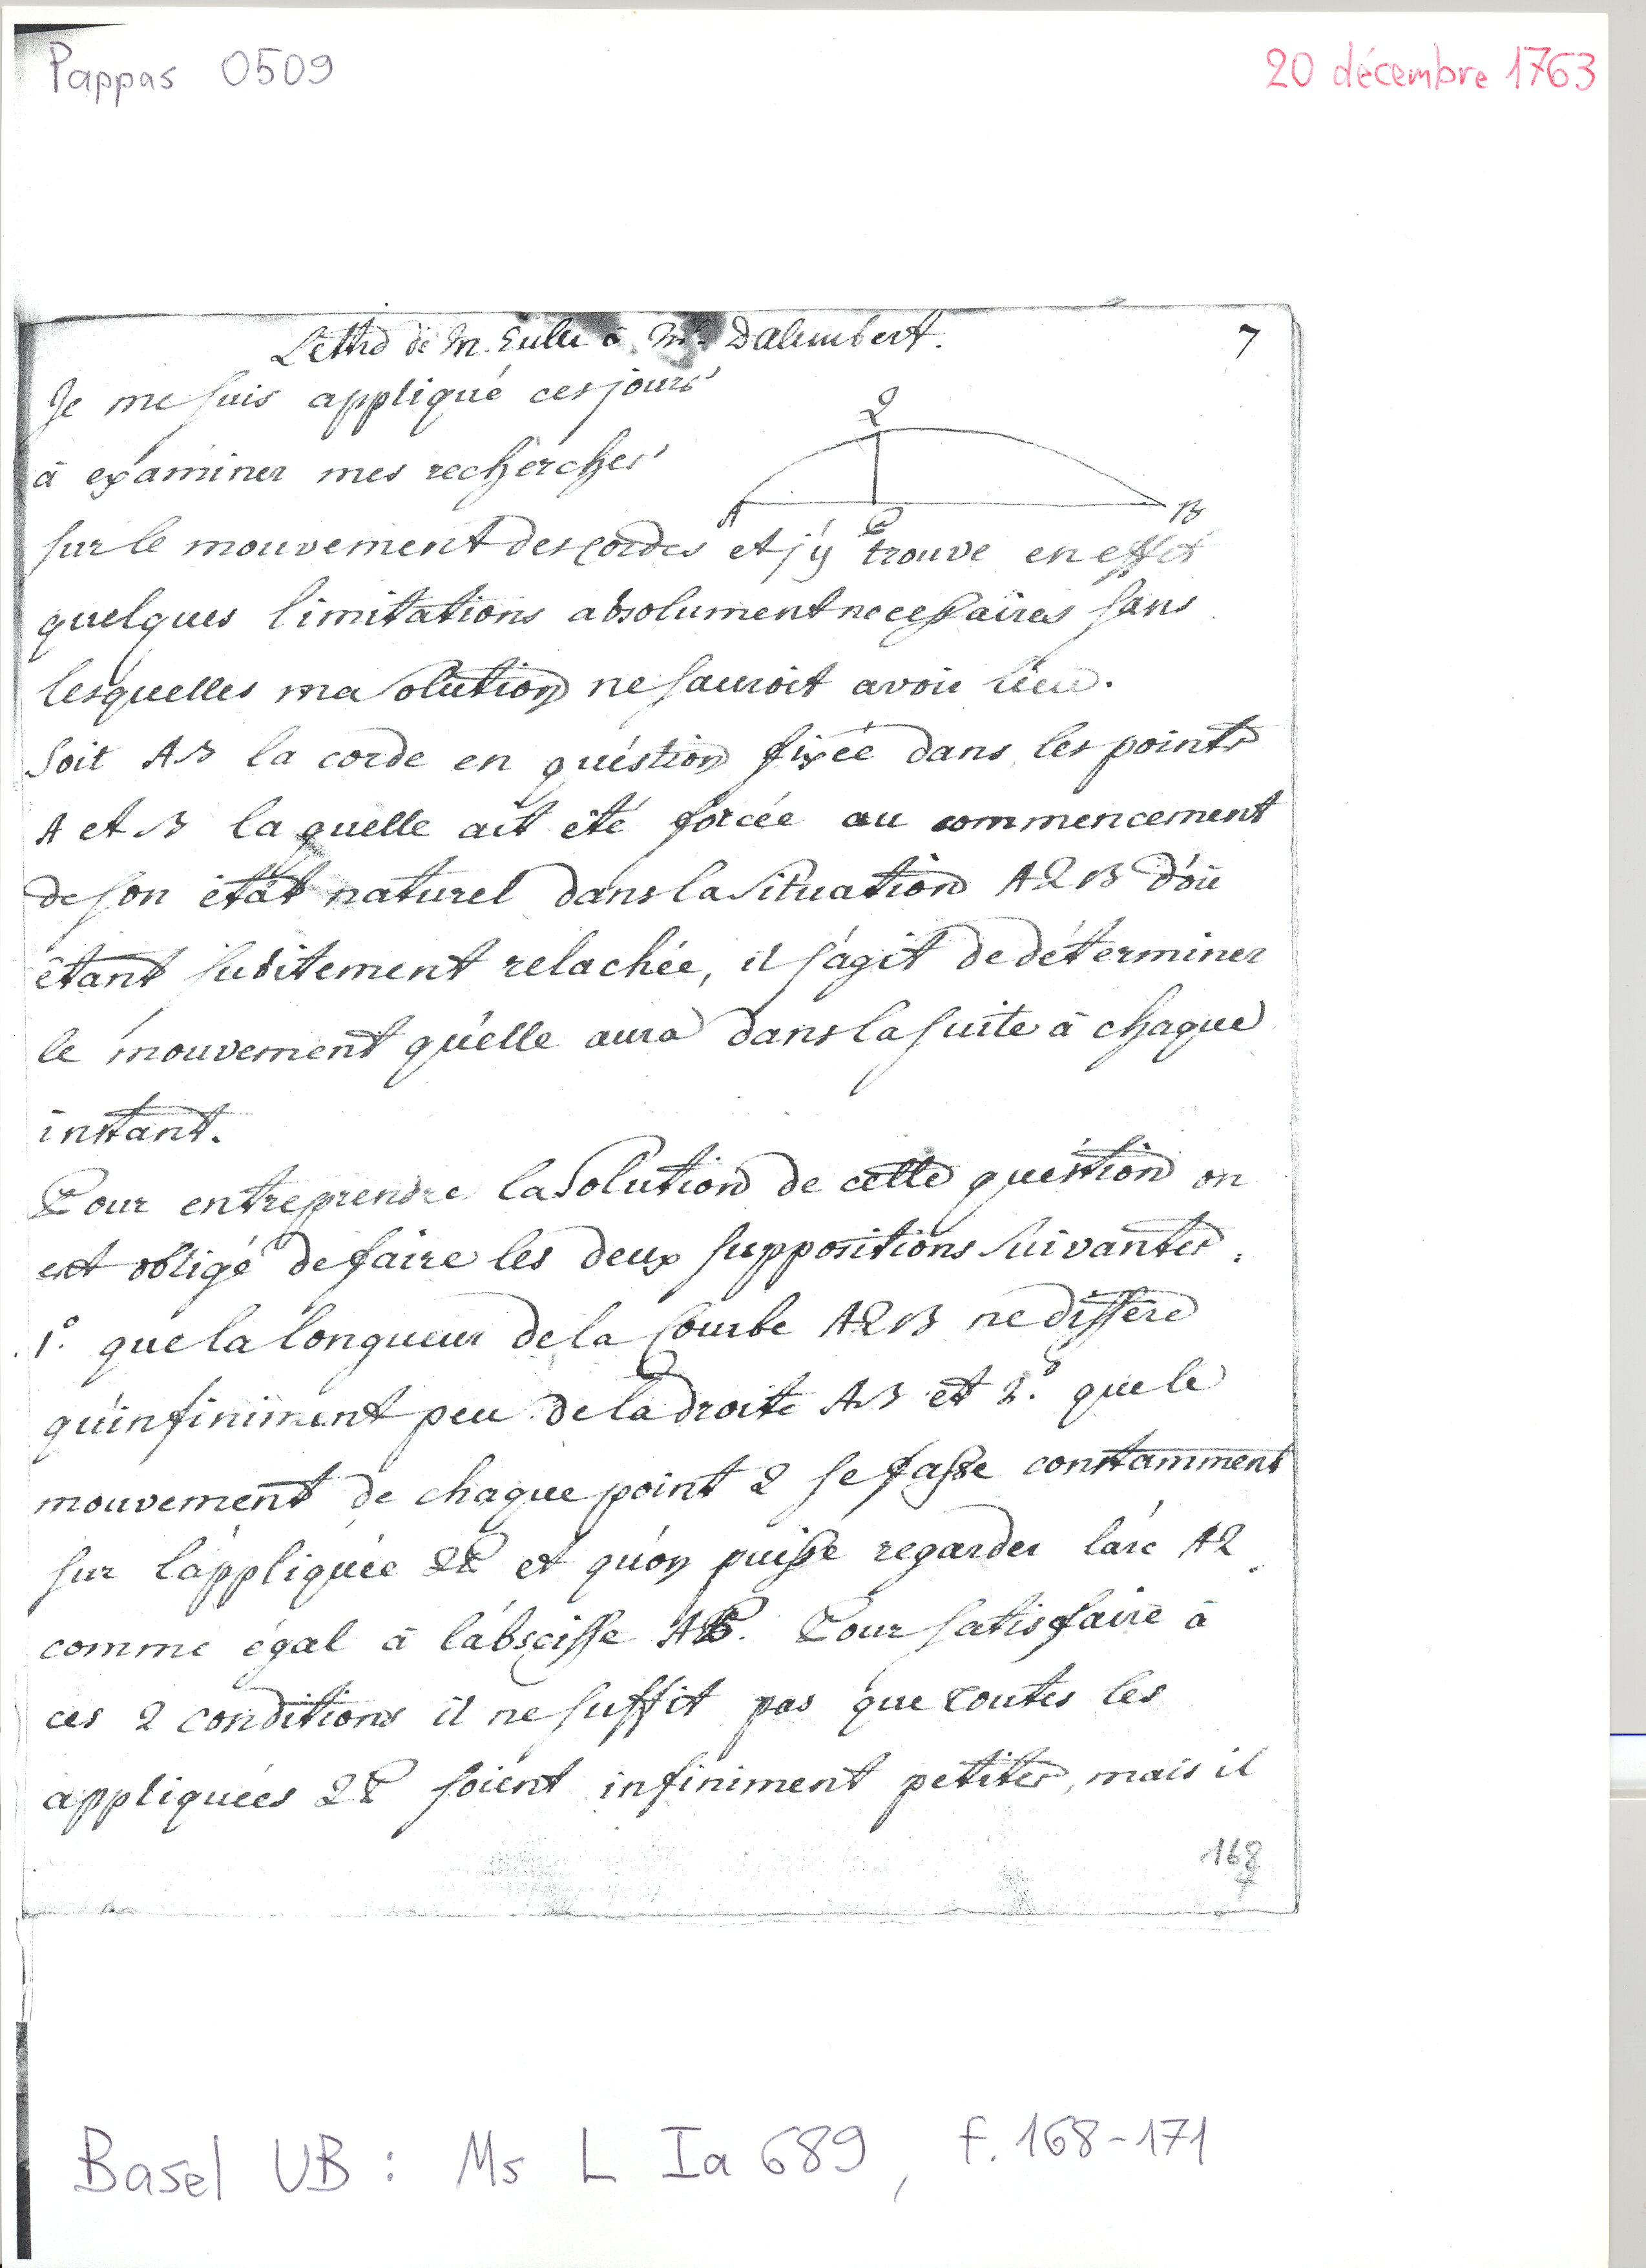 Pappas 0509
20 décembre 1763
Lettre de M. Euler à Mr. Dalembert.
7
Je me suis appliqué ces jours
à examiner mes recherches
Q
A P B
sur le mouvement des cordes et j'y trouve en effet
quelques limitations absolument necessaires sans
lesquelles ma solution ne sauroit avoir lieu.
Soit AB la corde en quéstion fixée dans les points
A et B la quelle ait été forcée au commencement
de son état naturel dans la Situation AQB d'óu
étant subitement relachée, il s'agit de déterminer
le mouvement qu'elle aura dans la suite à chaque
instant.
Pour entreprendre la Solution de cette quéstion on
est obligé de faire les deux suppositions suivantes.
1.° que la longueur de la Courbe AQB ne differe
qu'infiniment peu de la droite AB et 2.° que le
mouvement de chaque point Q se fasse constamment
sur l'appliquée QP et qu'on puisse regarder l'arc AQ
comme égal à l'abscisse AP. Pour satisfaire à
ces 2 conditions il ne suffit pas que toutes les
appliquées QP soient infiniment petites, mais il
168
Basel UB : Ms L Ia 689, f. 168-171